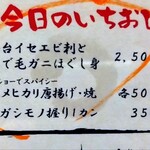 今日のいちお
台イセエビ刺と
で毛ガニほぐし身 2,50
ショーでスパイシー
メヒカリ唐揚げ・焼 各50
ガシモノ握り1カン 35